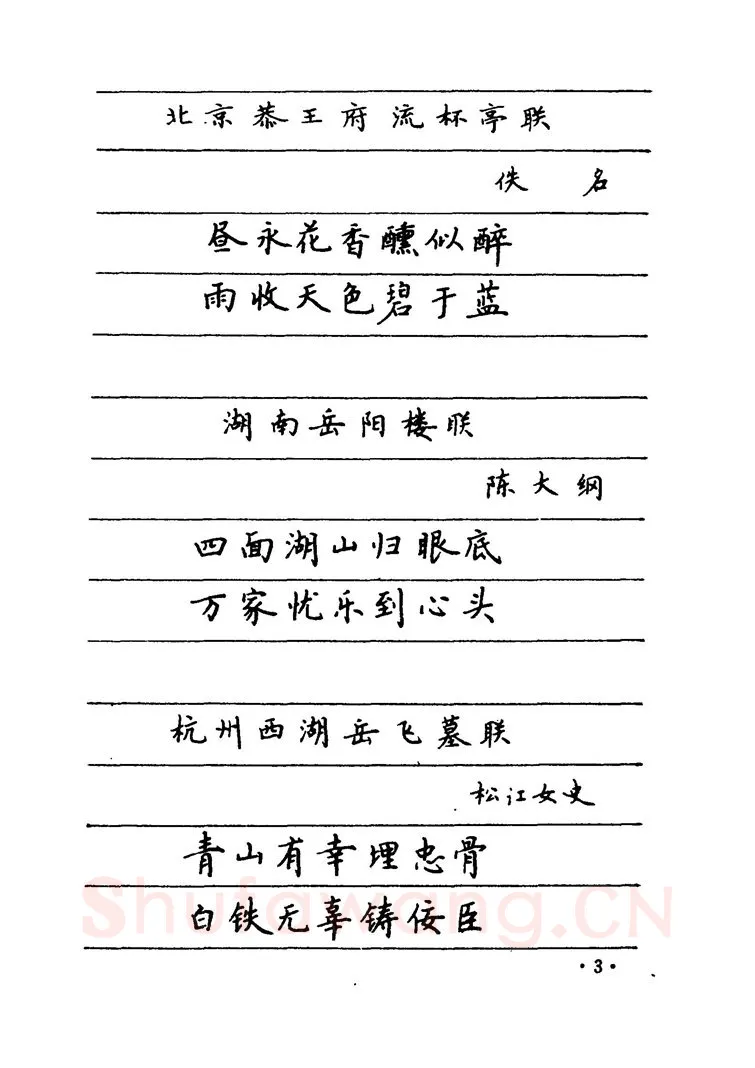 北京恭王府流杯亭联
佚名
昼永花香醺似醉
雨收天色碧于蓝
湖南岳阳楼联
陈大纲
四面湖山归眼底
万家忧乐到心头
杭州西湖岳飞墓联
松江女史
青山有幸埋忠骨
白铁无辜铸佞臣
Shufawang.CN
·3·